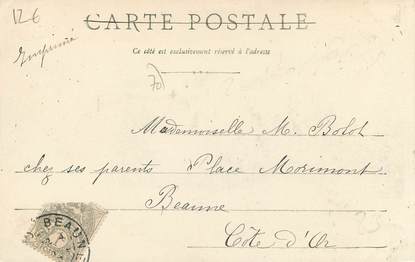 12€
CARTE POSTALE
Imprimé
Ce côté est exclusivement réservé à l'adresse
70
Mademoiselle M. Bolot
chez ses parents Place Morimont
Beaune
Côte d'Or
BEAUNE